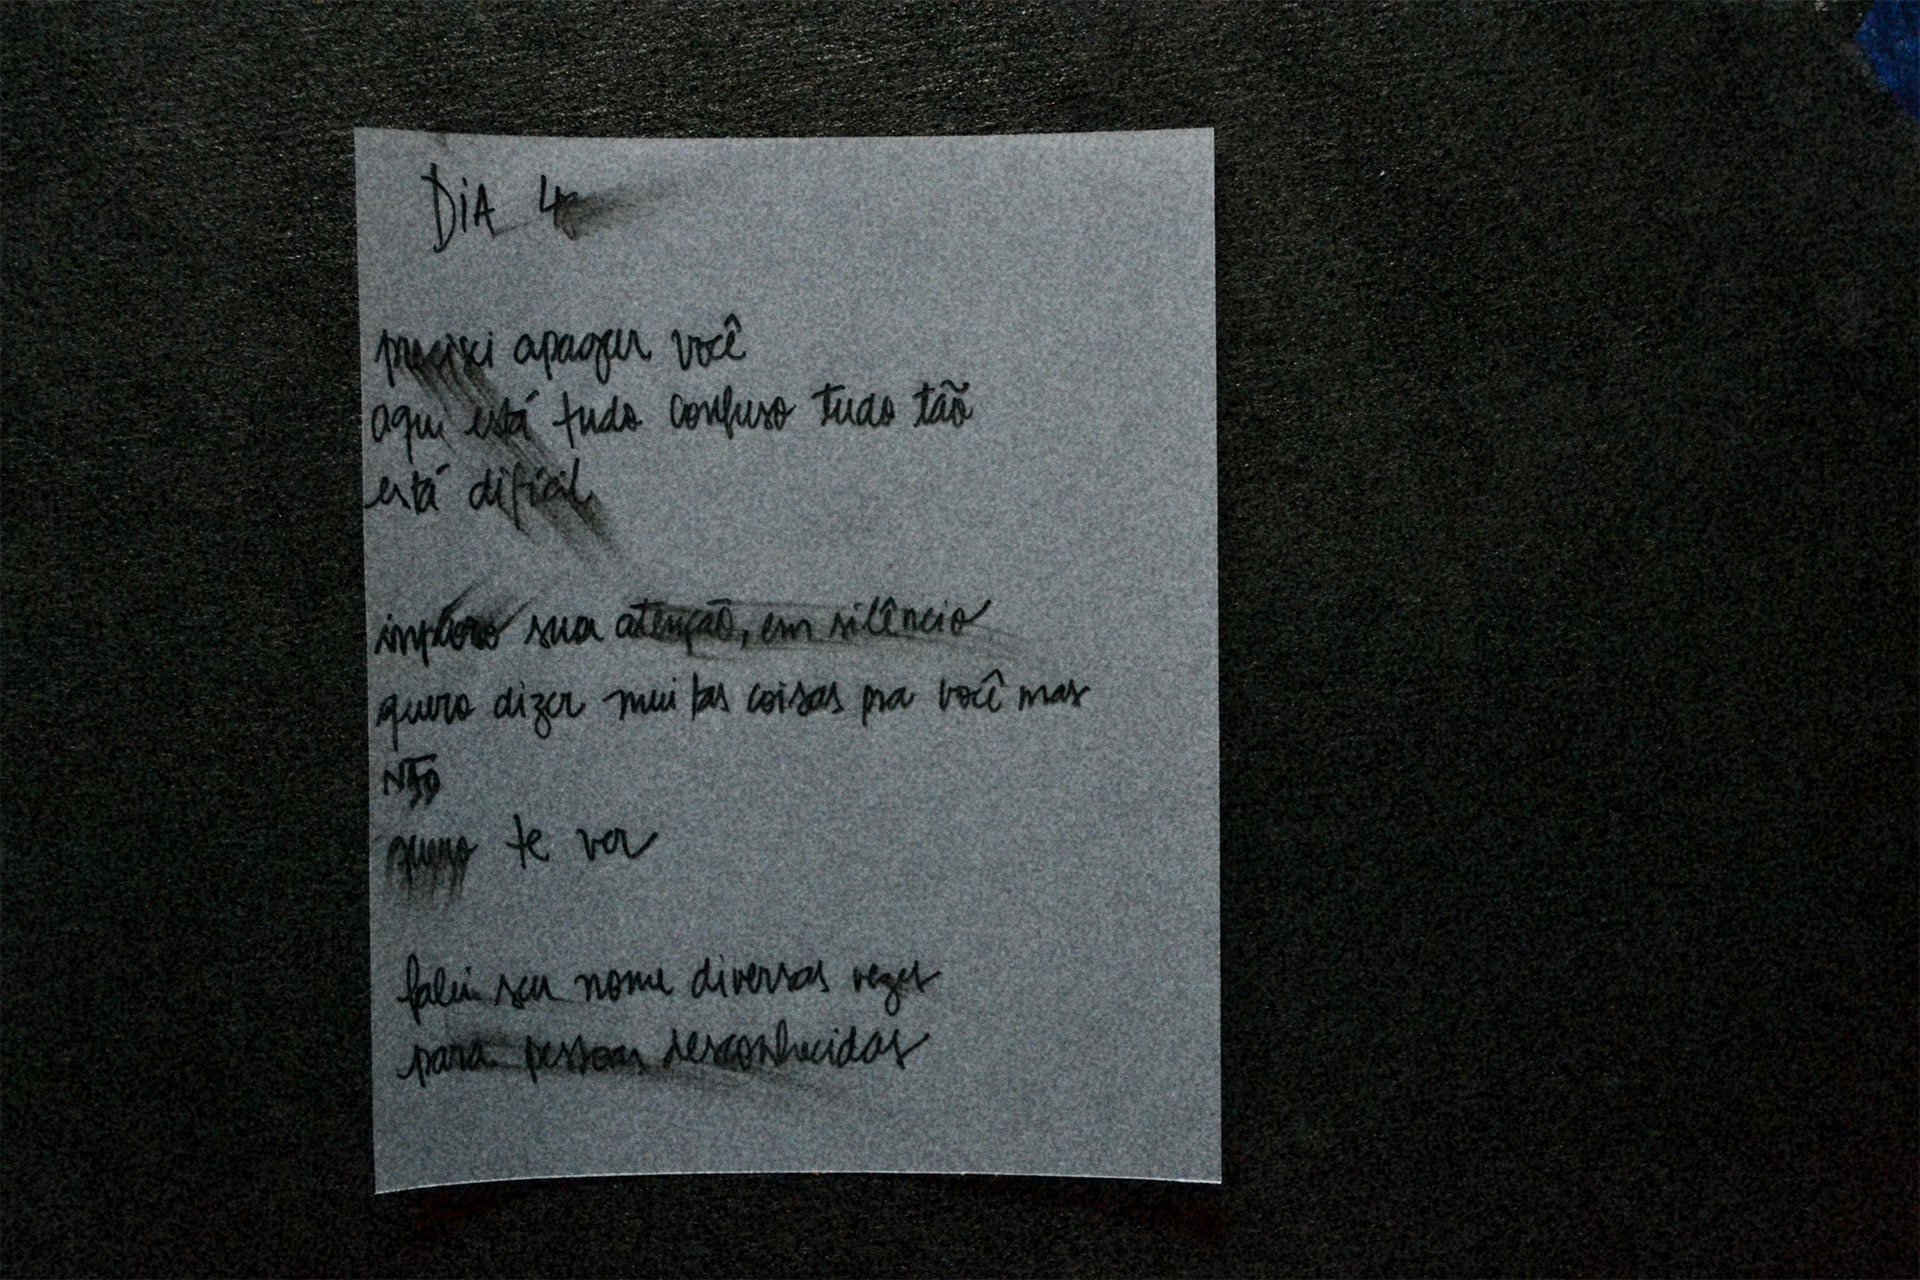 DIA 4
precisei apagar você
aqui está tudo confuso tudo tão
está difícil
imploro sua atenção, em silêncio
quero dizer muitas coisas pra você mas
NÃO
quero te ver
falei seu nome diversas vezes
para pessoas desconhecidas